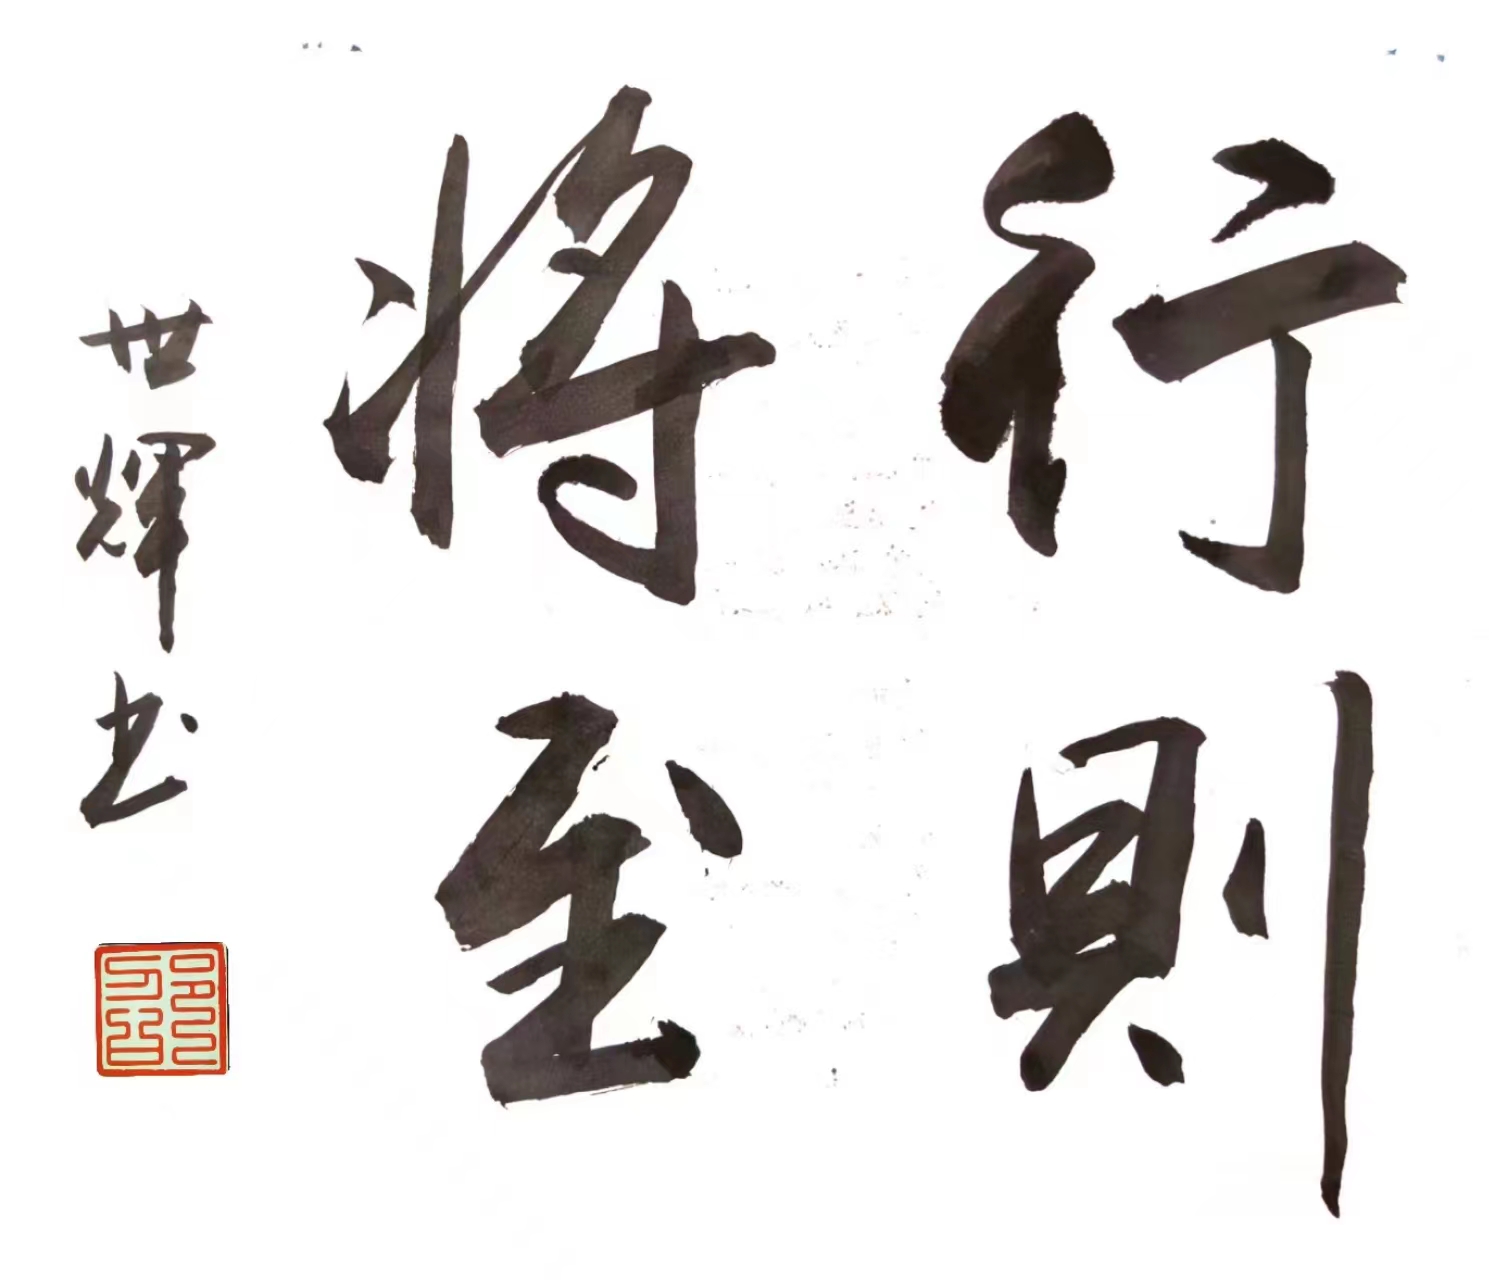 行則
将至
世輝书